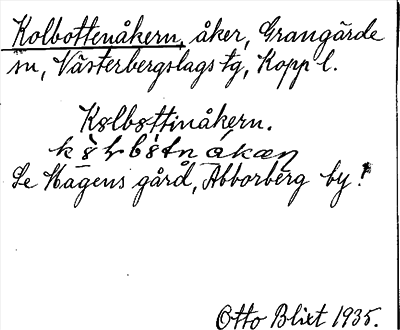 Kolbottenåkern, åker, Grangärde
sn, Västerbergslags tg, Kopp l.
Kolbottinåkern.
Se Hagens gård, Abborberg by!
Otto Blixt 1935.